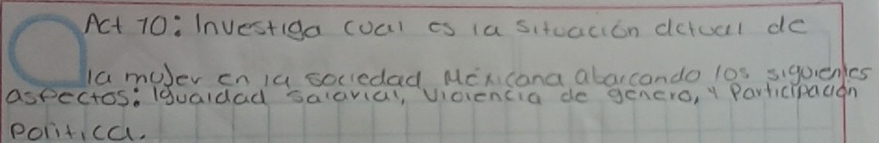 Act 10: Investiga cual es la situación actual de
la mujer en la sociedad Mexicana abarcando los siguientes
aspectos: Igualdad salarial, violencia de genero, y Participación
politica.